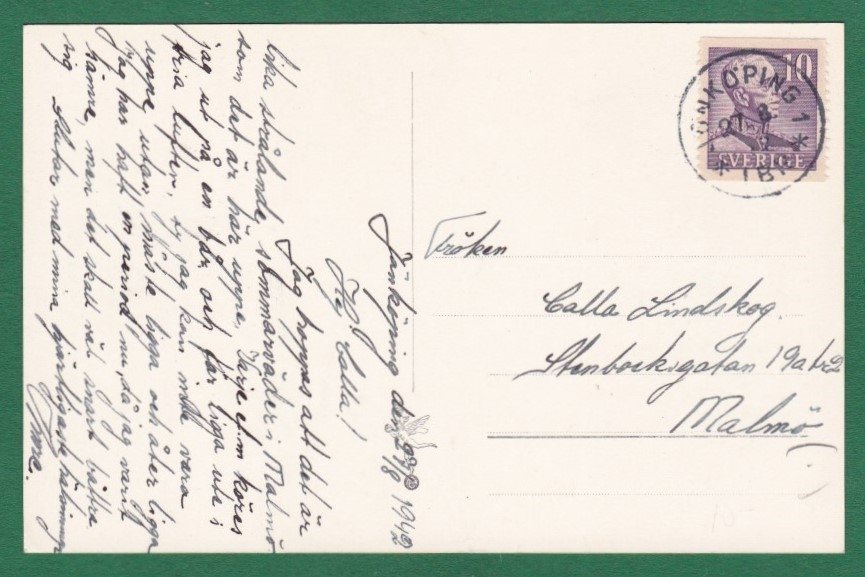 Jönköping den 27/8 1942
Hej Calla!
Jag hoppas att det är
lika strålande sommarväder i Malmö
som det är här uppe. Varje e.m köres
jag ut på en bår och får ligga ute i
fria luften, ty jag kan inte vara
uppe utan måste ligga och åter ligga
Jag har haft en period nu, då jag varit
sämre, men det skall väl snart bättra
sig. Slutar med mina hjärtligaste hälsningar

10
SVERIGE
JÖNKÖPING 1
27 8
Fröken
Calla Lindskog.
Stenbocksgatan 19a tr2
Malmö